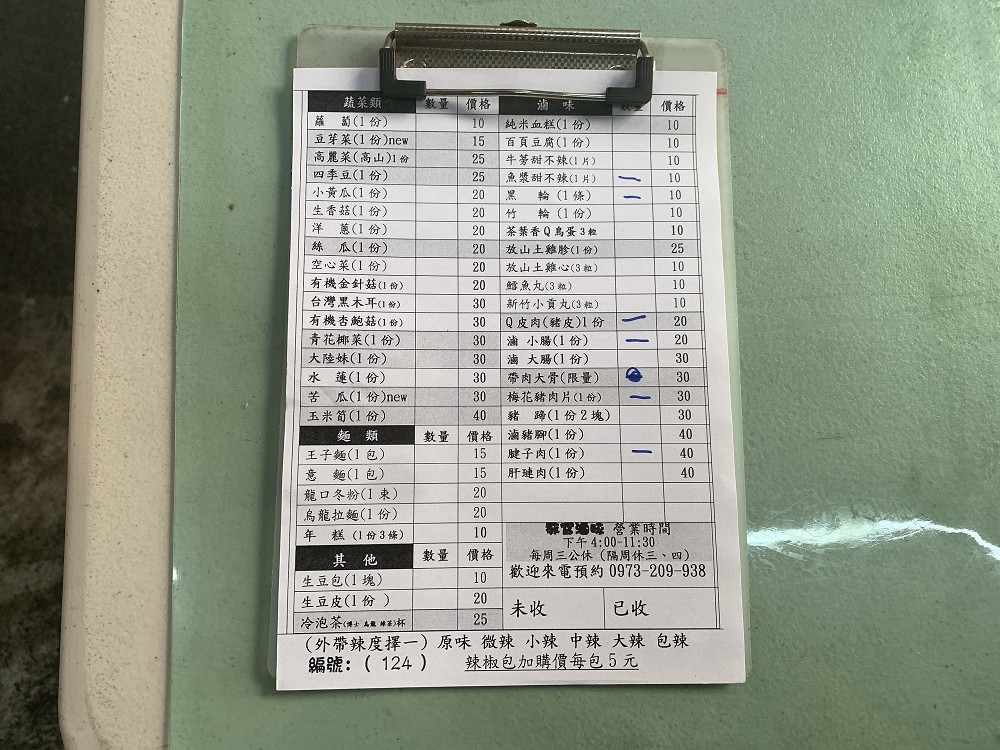 蔬菜類 數量 價格
蘿蔔(1份) 10
豆芽菜(1份)new 15
高麗菜(高山)1份 25
四季豆(1份) 25
小黃瓜(1份) 20
生香菇(1份) 20
洋蔥(1份) 20
絲瓜(1份) 20
空心菜(1份) 20
有機金針菇(1份) 20
台灣黑木耳(1份) 30
有機杏鮑菇(1份) 30
青花椰菜(1份) 30
大陸妹(1份) 30
水蓮(1份) 30
苦瓜(1份)new 30
玉米筍(1份) 40
麵類 數量 價格
王子麵(1包) 15
意麵(1包) 15
龍口冬粉(1束) 20
烏龍拉麵(1份) 20
年糕(1份3條) 10
其他 數量 價格
生豆包(1塊) 10
生豆皮(1份) 20
冷泡茶(博士 烏龍 綠茶)杯 25
滷味 價格
純米血糕(1份) 10
百頁豆腐(1份) 10
牛蒡甜不辣(1片) 10
魚漿甜不辣(1片) 10
黑輪(1條) 10
竹輪(1份) 10
茶葉香Q鳥蛋3粒 10
放山土雞胗(1份) 25
放山土雞心(3粒) 10
鱈魚丸(3粒) 10
新竹小貢丸(3粒) 10
Q皮肉(豬皮)1份 20
滷小腸(1份) 20
滷大腸(1份) 30
帶肉大骨(限量) 30
梅花豬肉片(1份) 30
豬蹄(1份2塊) 30
滷豬腳(1份) 40
腱子肉(1份) 40
肝連肉(1份) 40
營業時間
下午4:00-11:30
每周三公休(隔周休三、四)
歡迎來電預約 0973-209-938
未收 已收
(外帶辣度擇一) 原味 微辣 小辣 中辣 大辣 包辣
編號:(124) 辣椒包加購價每包5元